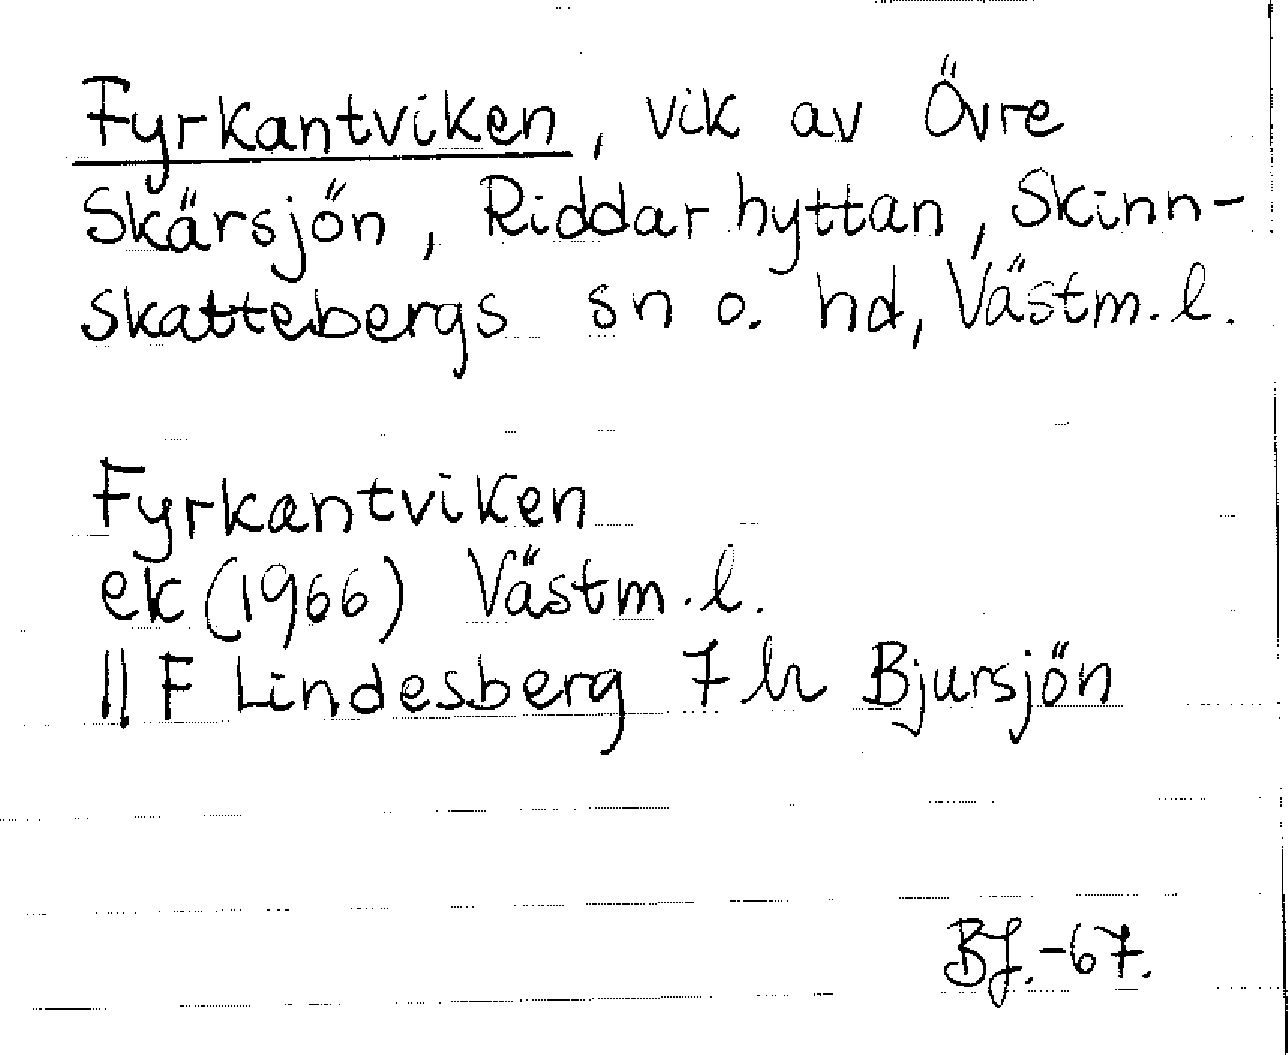 Fyrkantviken, vik av Övre
Skärsjön, Riddarhyttan, Skinn-
skattebergs sn o. hd, Västm. l.
Fyrkantviken
ek (1966) Västm. l.
11 F Lindesberg 7 h Bjursjön
BJ. -67.